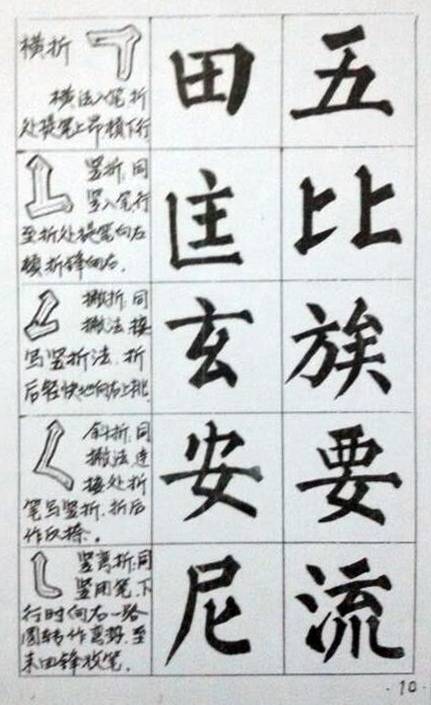 横折
横法入笔折
处提笔上昂顿下行
田 五
竖折,同
竖入笔行
至折处提笔向左
顿折锋向右.
匡 比
撇折,同
撇法,接
写竖折法,折
后轻快地向右上挑
玄 族
斜折,同
撇法,连
接处折
笔写竖折,折后
作反捺。
安 要
竖弯折,同
竖用笔,下
行时向右一路
圆转作弯势,至
末回锋收笔.
尼 流
·10·